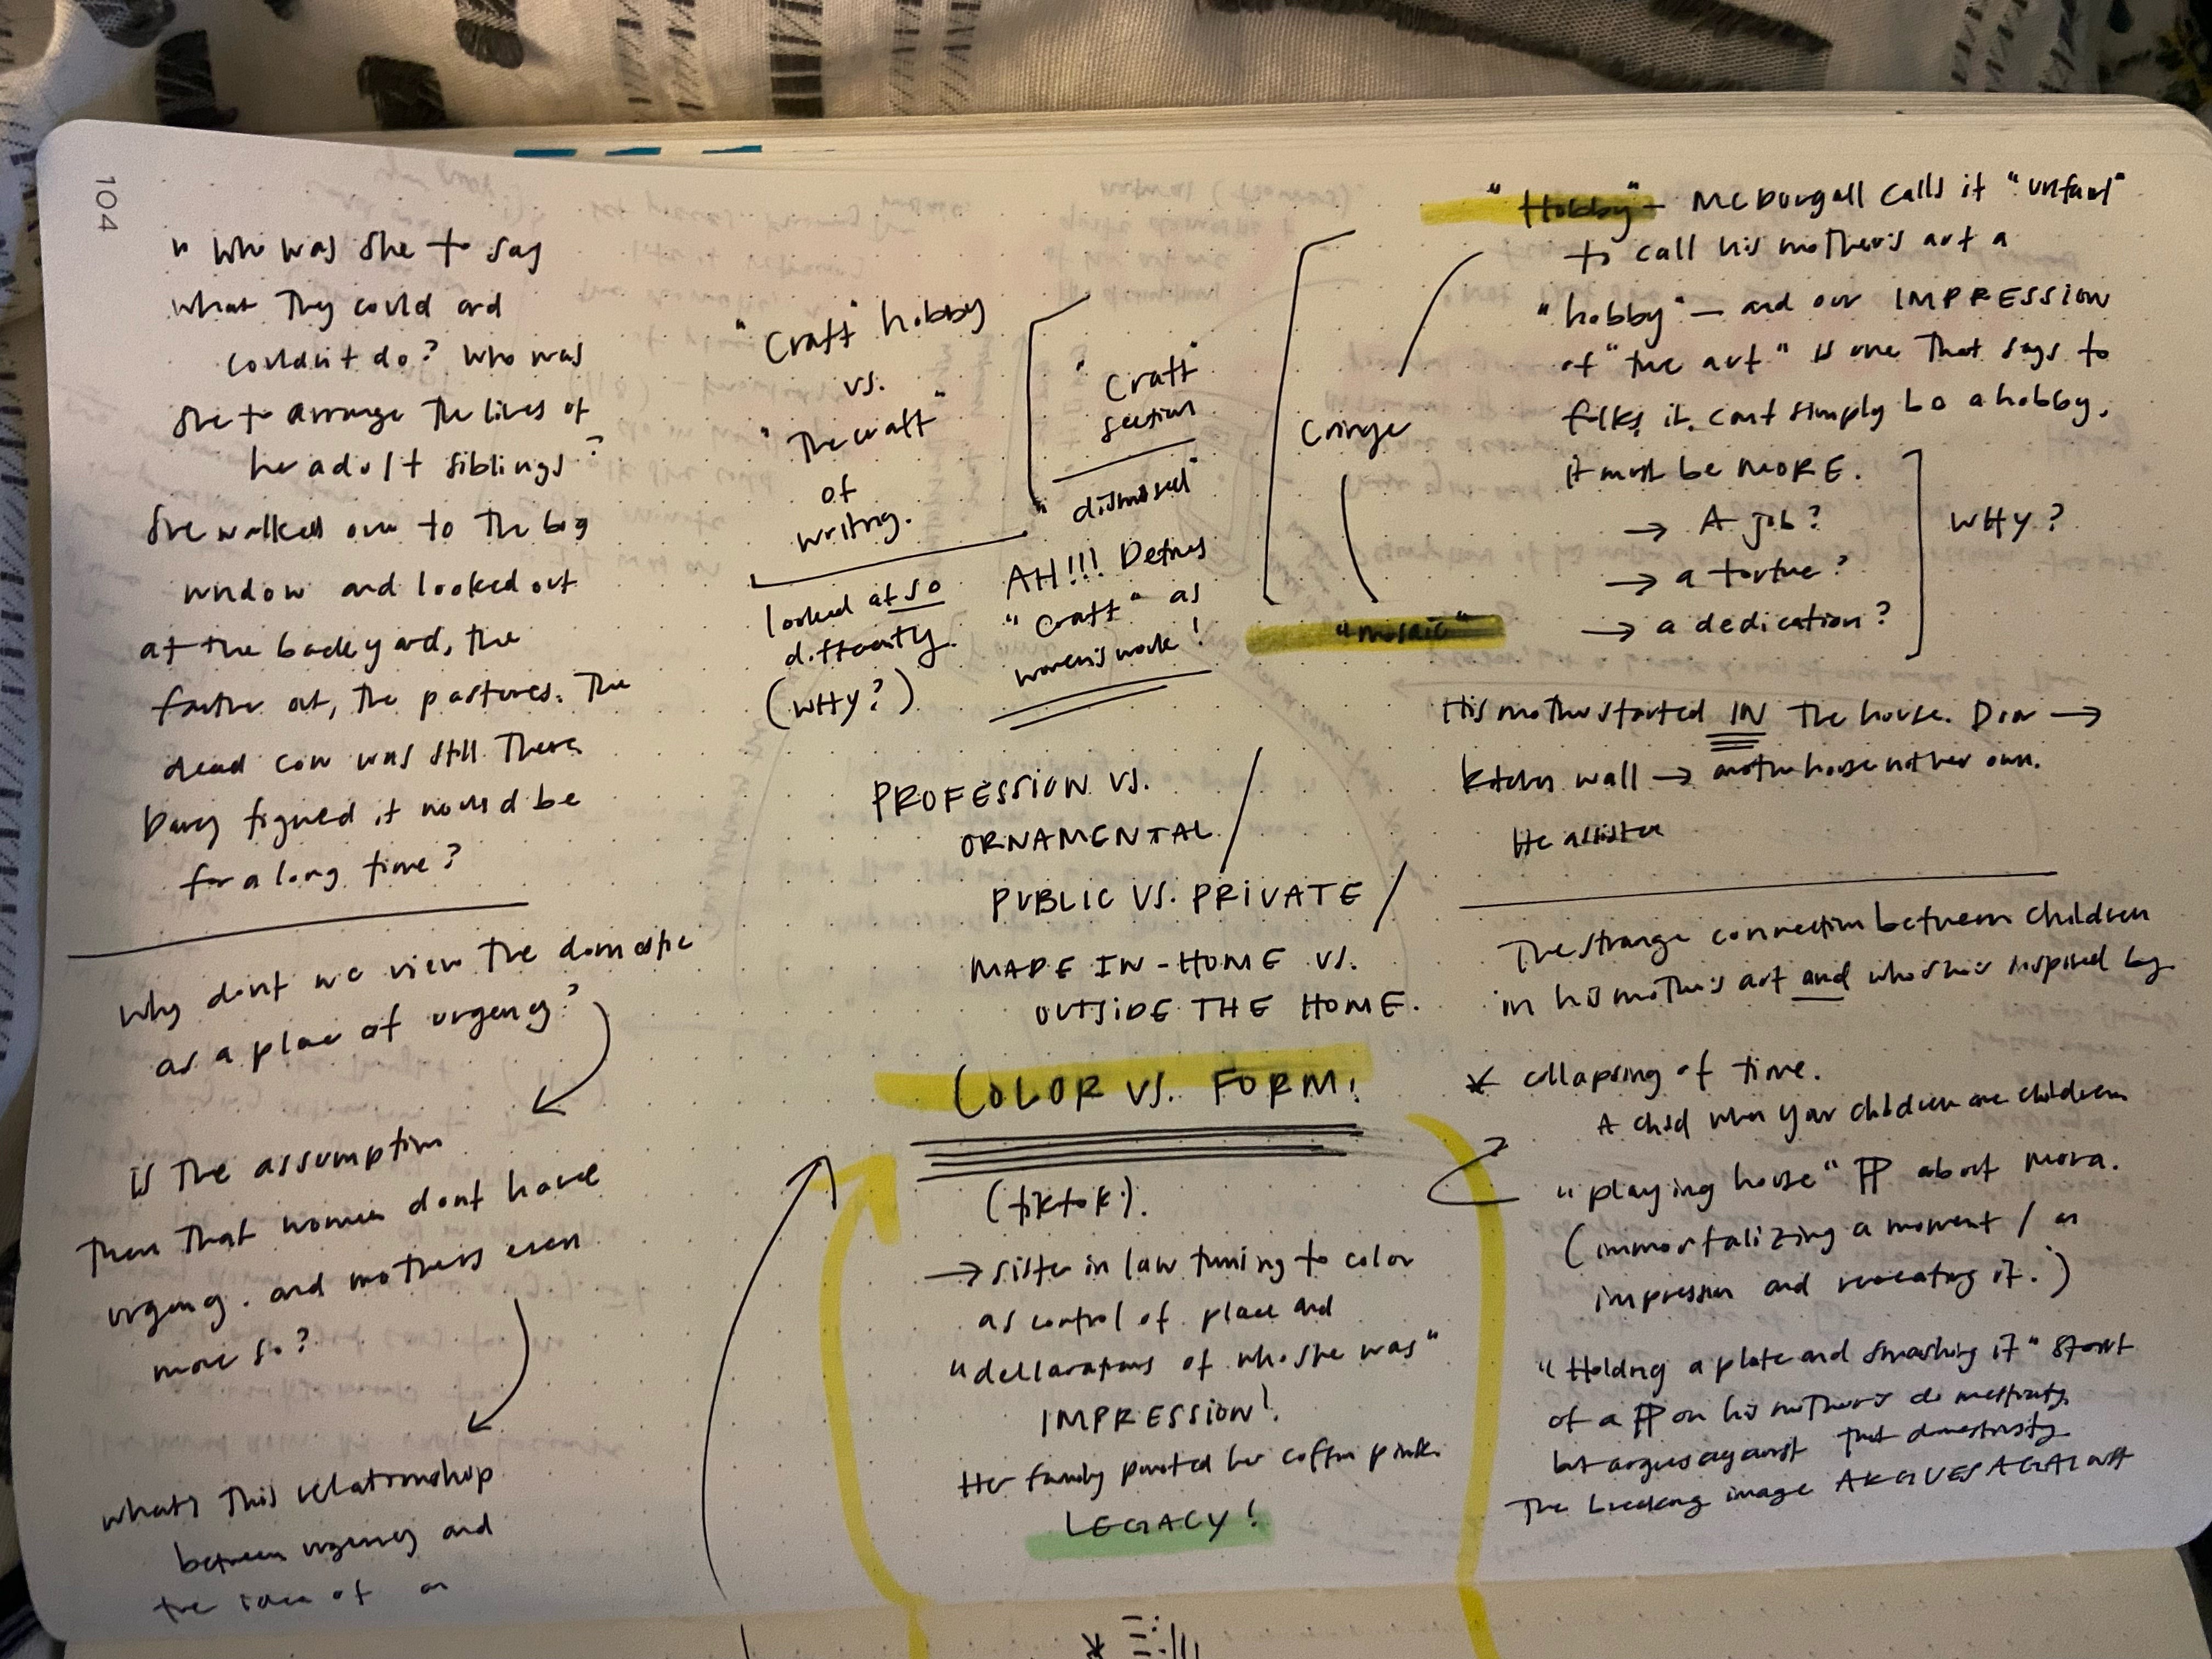 104
" Who was she to say
what they could and
couldn't do? Who was
she to arrange the lives of
her adult siblings?
She walked over to the big
window and looked out
at the backyard, the
farther out, the pastures. The
dead cow was still there
figured it would be
for a long time?
Why don't we view the domestic
as a place of urgency?
is the assumption
then that women don't have
urgency. and mothers even
more so?
what's this relationship
between urgency and
the idea of an
"Craft" hobby
vs.
"The craft"
of
writing.
looked at so
differently.
(WHY?)
"Craft"
section
"dismissed"
AH!!! Defines
"Craft" as
women's work!
PROFESSION VS.
ORNAMENTAL /
PUBLIC VS. PRIVATE /
MADE IN-HOME VS.
OUTSIDE THE HOME.
COLOR VS. FORM!
(tiktok).
→ sister in law turning to color
as control of place and
"declarations of who she was"
IMPRESSION!
Her family painted her coffin pink.
LEGACY!
Cringe
"mosaic"
"Hobby" - McDougall calls it "unfair"
to call his mother's art a
"hobby" — and our IMPRESSION
of "the art" is one that says to
folks, it can't simply be a hobby.
it must be MORE.
→ A job?
→ a torture?
→ a dedication?
WHY?
His mother started IN the house. Door →
kitchen wall → another house not her own.
He assisted
The strange connection between children
in his mother's art and who she's inspired by
* collapsing of time.
A child when your children are children
"playing house" ¶ about Mora.
(immortalizing a moment / an
impression and recreating it.)
"Holding a plate and smashing it" start
of a ¶ on his mother's domesticity.
but argues against that domesticity
The breaking image ARGUES AGAINST
*